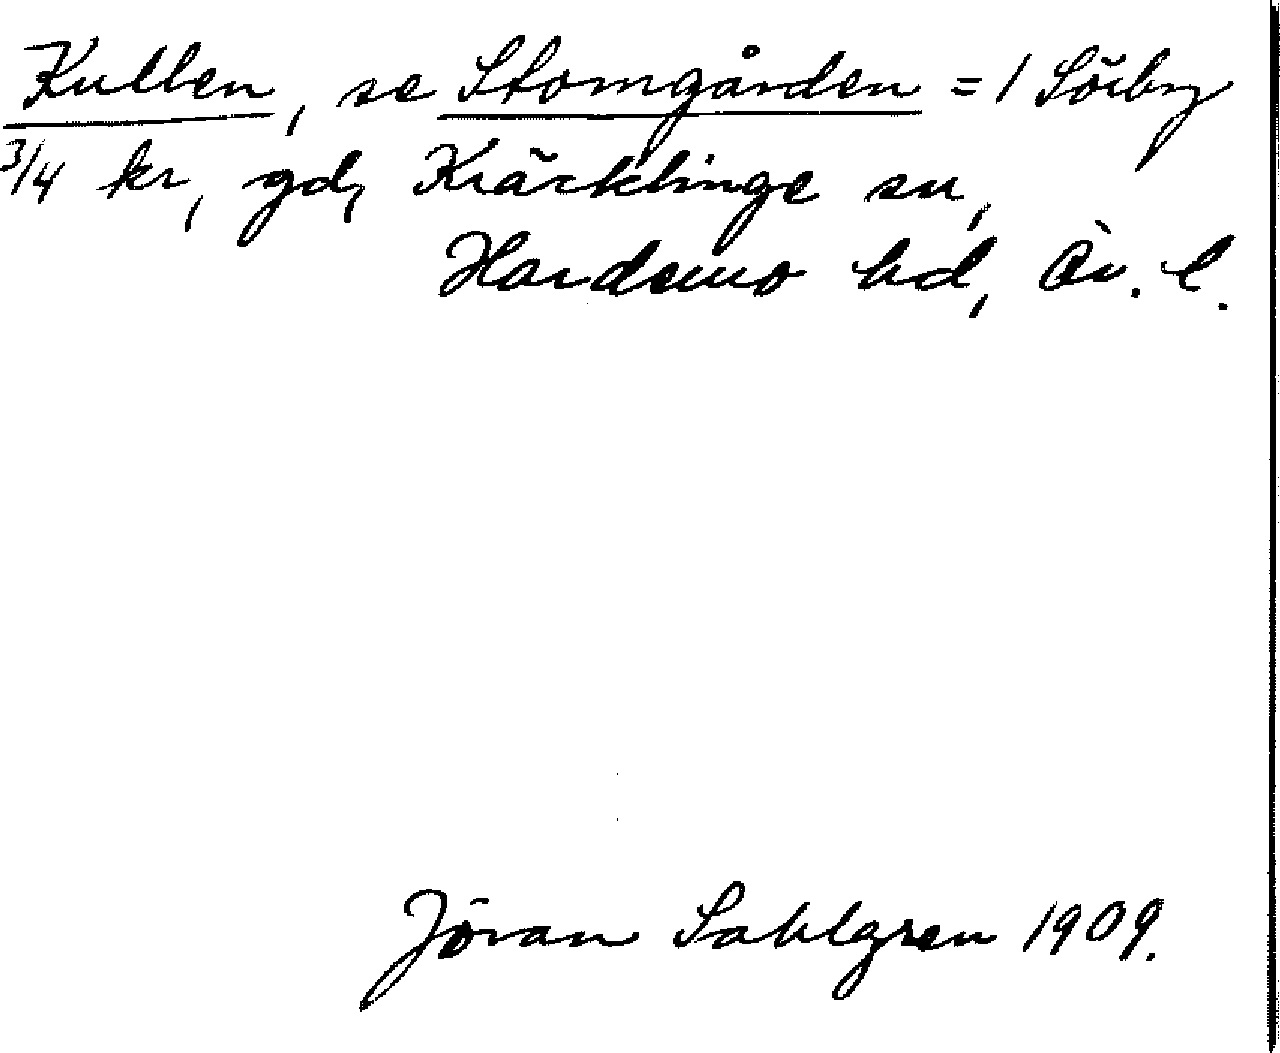 Kullen, se Stomgården = 1 Sörby
3/4 kr, gd, Kräcklinge sn,
Hardemo hd, Ör. l.
Jöran Sahlgren 1909.